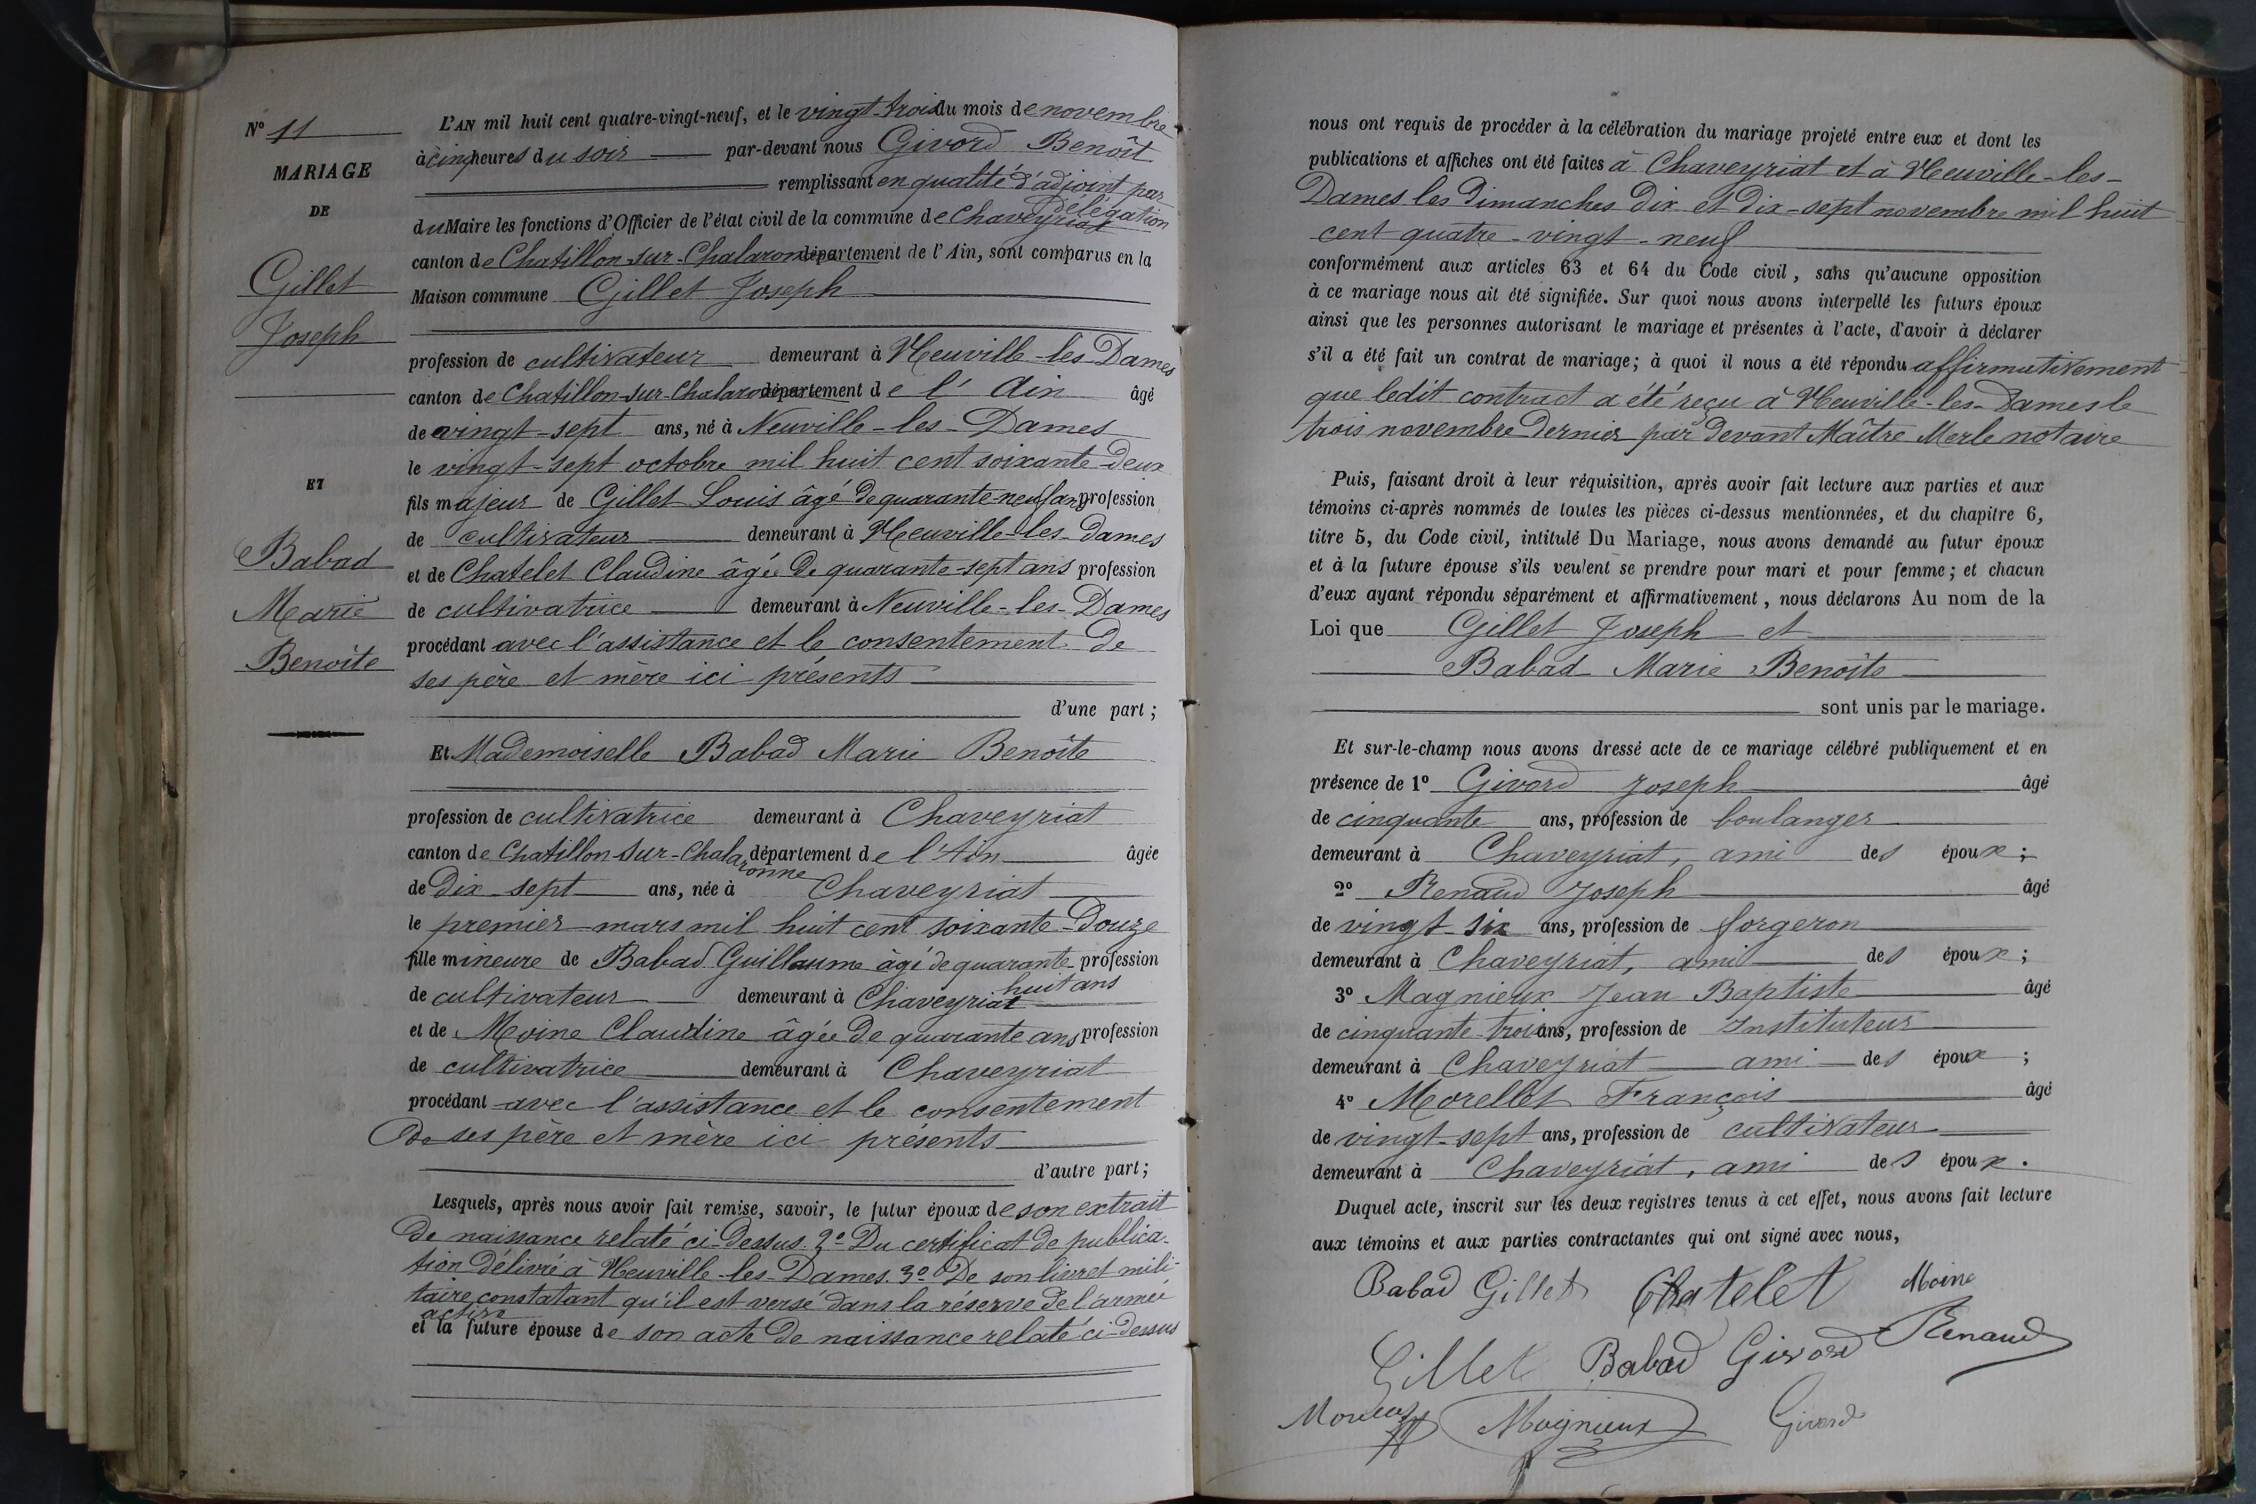 N° 11
MARIAGE
DE
Gillet
Joseph
ET
Babad
Marie
Benoîte
L'AN mil huit cent quatre-vingt-neuf, et le vingt-trois du mois de novembre
à cinq heures du soir par-devant nous Givord Benoît
remplissant en qualité d'adjoint par
délégation
du Maire les fonctions d'Officier de l'état civil de la commune de Chaveyriat
canton de Chatillon-sur-Chalaronne département de l'Ain, sont comparus en la
Maison commune Gillet Joseph
profession de cultivateur demeurant à Neuville-les-Dames
canton de Chatillon-sur-Chalaronne département de l'Ain âgé
de vingt-sept ans, né à Neuville-les-Dames
le vingt-sept octobre mil huit cent soixante-deux
fils majeur de Gillet Louis âgé de quarante-neuf ans profession
de cultivateur demeurant à Neuville-les-Dames
et de Chatelet Claudine âgée de quarante-sept ans profession
de cultivatrice demeurant à Neuville-les-Dames
procédant avec l'assistance et le consentement de
ses père et mère ici présents
d'une part ;
Et Mademoiselle Babad Marie Benoîte
profession de cultivatrice demeurant à Chaveyriat
canton de Chatillon-sur-Chalaronne département de l'Ain âgée
de dix-sept ans, née à Chaveyriat
le premier mars mil huit cent soixante-douze
fille mineure de Babad Guillaume âgé de quarante- profession
huit ans
de cultivateur demeurant à Chaveyriat
et de Moine Claudine âgée de quarante ans profession
de cultivatrice demeurant à Chaveyriat
procédant avec l'assistance et le consentement
de ses père et mère ici présents
d'autre part ;
Lesquels, après nous avoir fait remise, savoir, le futur époux de son extrait
de naissance relaté ci-dessus. 2° Du certificat de publica-
tion délivré à Neuville-les-Dames. 3° De son livret mili-
taire constatant qu'il est versé dans la réserve de l'armée
active
et la future épouse de son acte de naissance relaté ci-dessus
nous ont requis de procéder à la célébration du mariage projeté entre eux et dont les
publications et affiches ont été faites à Chaveyriat et à Neuville-les-
Dames les dimanches dix et dix-sept novembre mil huit
cent quatre-vingt-neuf
conformément aux articles 63 et 64 du Code civil, sans qu'aucune opposition
à ce mariage nous ait été signifiée. Sur quoi nous avons interpellé les futurs époux
ainsi que les personnes autorisant le mariage et présentes à l'acte, d'avoir à déclarer
s'il a été fait un contrat de mariage ; à quoi il nous a été répondu affirmativement
que ledit contract a été reçu à Neuville-les-Dames le
trois novembre dernier par devant Maître Merle notaire
Puis, faisant droit à leur réquisition, après avoir fait lecture aux parties et aux
témoins ci-après nommés de toutes les pièces ci-dessus mentionnées, et du chapitre 6,
titre 5, du Code civil, intitulé Du Mariage, nous avons demandé au futur époux
et à la future épouse s'ils veulent se prendre pour mari et pour femme ; et chacun
d'eux ayant répondu séparément et affirmativement, nous déclarons Au nom de la
Loi que Gillet Joseph et
Babad Marie Benoîte
sont unis par le mariage.
Et sur-le-champ nous avons dressé acte de ce mariage célébré publiquement et en
présence de 1° Givord Joseph âgé
de cinquante ans, profession de boulanger
demeurant à Chaveyriat, ami des époux ;
2° Renaud Joseph âgé
de vingt six ans, profession de forgeron
demeurant à Chaveyriat, ami des époux ;
3° Magnieux Jean Baptiste âgé
de cinquante-trois ans, profession de Instituteur
demeurant à Chaveyriat ami des époux ;
4° Morellet François âgé
de vingt-sept ans, profession de cultivateur
demeurant à Chaveyriat, ami des époux.
Duquel acte, inscrit sur les deux registres tenus à cet effet, nous avons fait lecture
aux témoins et aux parties contractantes qui ont signé avec nous,
Babad Gillet Chatelet Moine
Gillet Babad Givord Renaud
Magnieux Givord